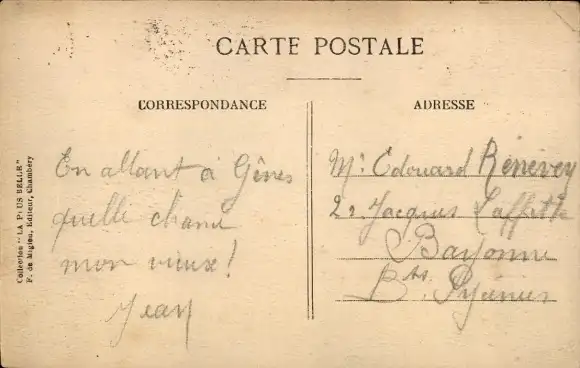 CARTE POSTALE
CORRESPONDANCE
En allant à Gênes
quelle chance
mon vieux !
Jean
ADRESSE
Mr Edouard Renevey
22 Jacques Laffitte
Bayonne
Bses Pyrénées
Collection "LA PLUS BELLE"
F. de Miglou, Editeur, Chambéry